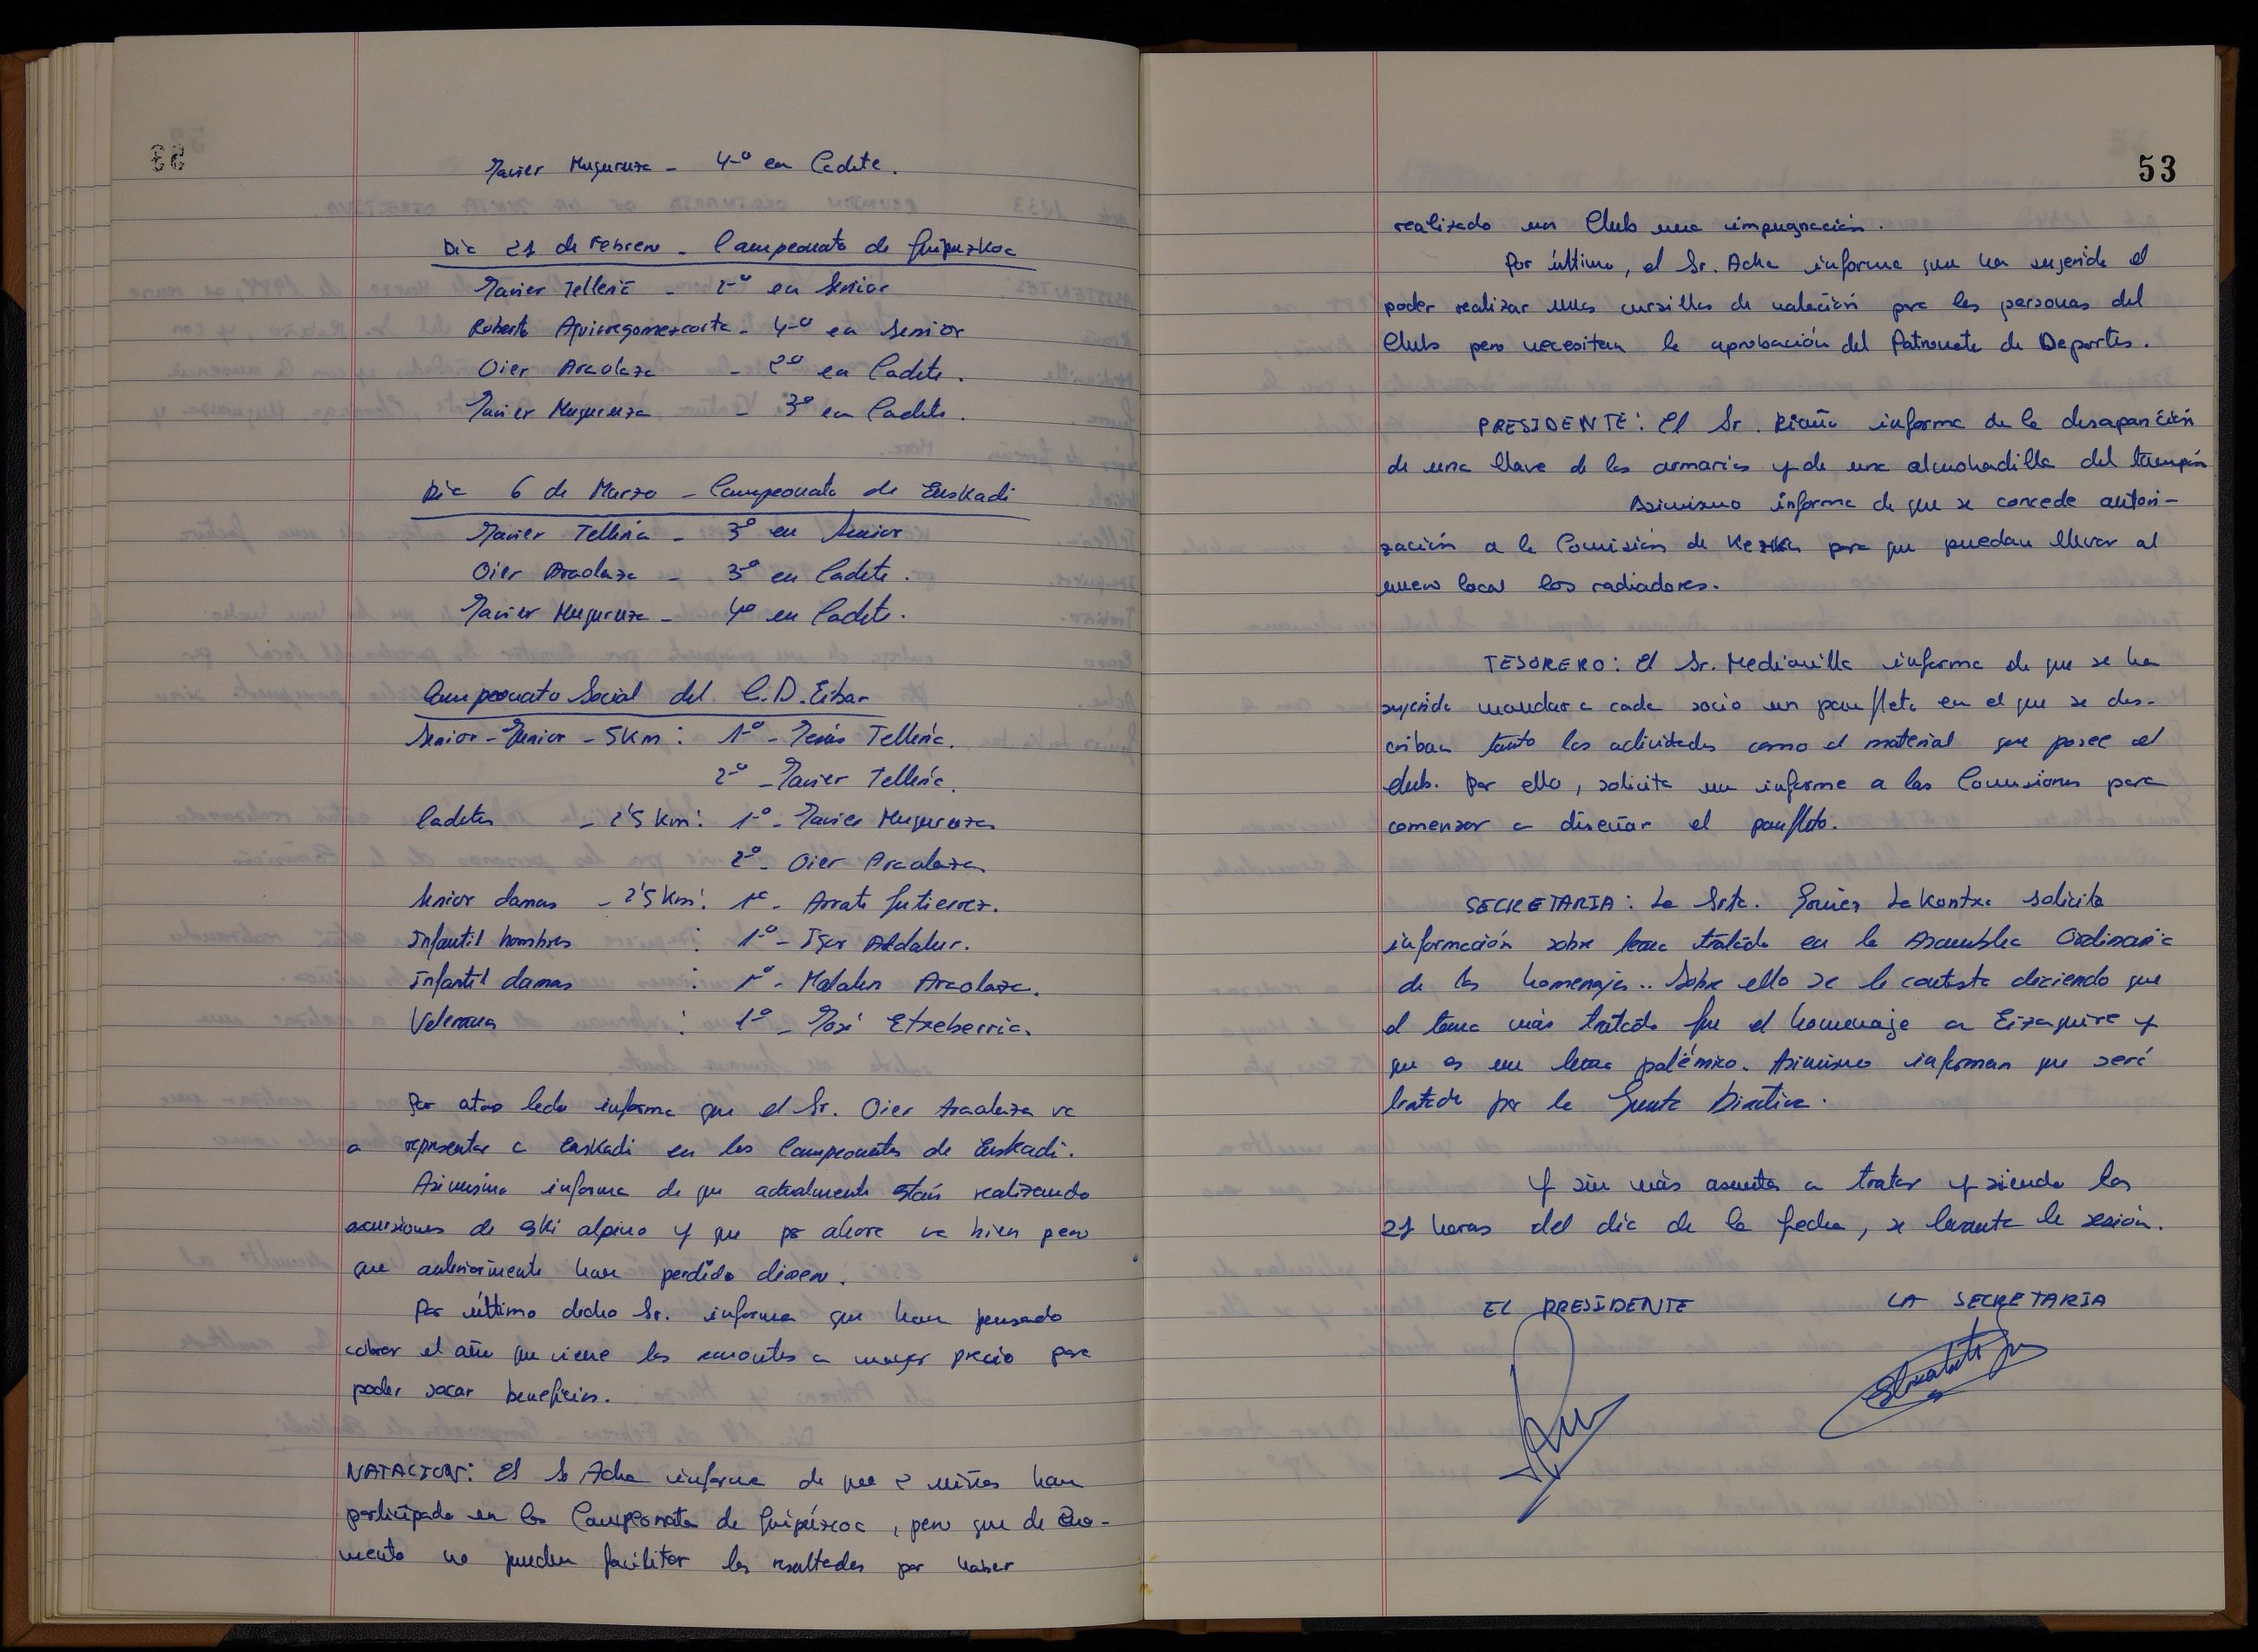 Javier Muguruza - 4º en Cadete.
Día 21 de Febrero - Campeonato de Guipuzkoa
Javier Tellería - 2º en Senior
Roberto Aguirregomezcorta - 4º en Senior
Oier Araolaza - 2º en Cadete.
Javier Muguruza - 3º en Cadete.
Día 6 de Marzo - Campeonato de Euskadi
Javier Tellería - 3º en Senior
Oier Araolaza - 3º en Cadete.
Javier Muguruza - 4º en Cadete.
Campeonato Social del C.D. Eibar
Senior-Junior - 5 Km: 1º - Jesús Tellería.
2º - Javier Tellería.
Cadetes - 2'5 Km: 1º - Javier Muguruza
2º - Oier Araolaza
Senior damas - 2'5 Km: 1ª - Arrate Gutierrez.
Infantil hombres : 1º - Igor Aldalur.
Infantil damas : 1º - Maialen Araolaza.
Veteranos : 1º - José Etxeberria.
Por otro lado informa que el Sr. Oier Araolaza va
a representar a Euskadi en los Campeonatos de Euskadi.
Asimismo informa de que actualmente están realizando
excursiones de ski alpino y que por ahora va bien pero
que anteriormente han perdido dinero.
Por último dicho Sr. informa que han pensado
cobrar el año que viene los remontes a mayor precio para
poder sacar beneficios.
NATACION: El Sr Acha informa de que 2 niños han
participado en los Campeonatos de Guipúzcoa, pero que de mo-
mento no pueden facilitar los resultados por haber
53
realizado un Club una impugnación.
Por último, el Sr. Acha informa que han sugerido el
poder realizar unos cursillos de natación para las personas del
Club pero necesitan la aprobación del Patronato de Deportes.
PRESIDENTE: El Sr. Riaño informa de la desaparición
de una llave de los armarios y de una almohadilla del tampón
Asimismo informa de que se concede autori-
zación a la Comisión de Kezka para que puedan llevar al
nuevo local los radiadores.
TESORERO: El Sr. Mediavilla informa de que se ha
sugerido mandar a cada socio un panfleto en el que se des-
criban tanto las actividades como el material que posee el
club. Por ello, solicita un informe a las Comisiones para
comenzar a diseñar el panfleto.
SECRETARIA: La Srta. Lakontxa solicita
información sobre tema tratado en la Asamblea Ordinaria
de los homenajes.. Sobre ello se le contesta diciendo que
el tema más tratado fue el homenaje a Eizaguirre y
que es un tema polémico. Asimismo informan que será
tratado por la Junta Directiva.
Y sin más asuntos a tratar y siendo las
21 horas del día de la fecha, se levanta la sesión.
EL PRESIDENTE LA SECRETARIA